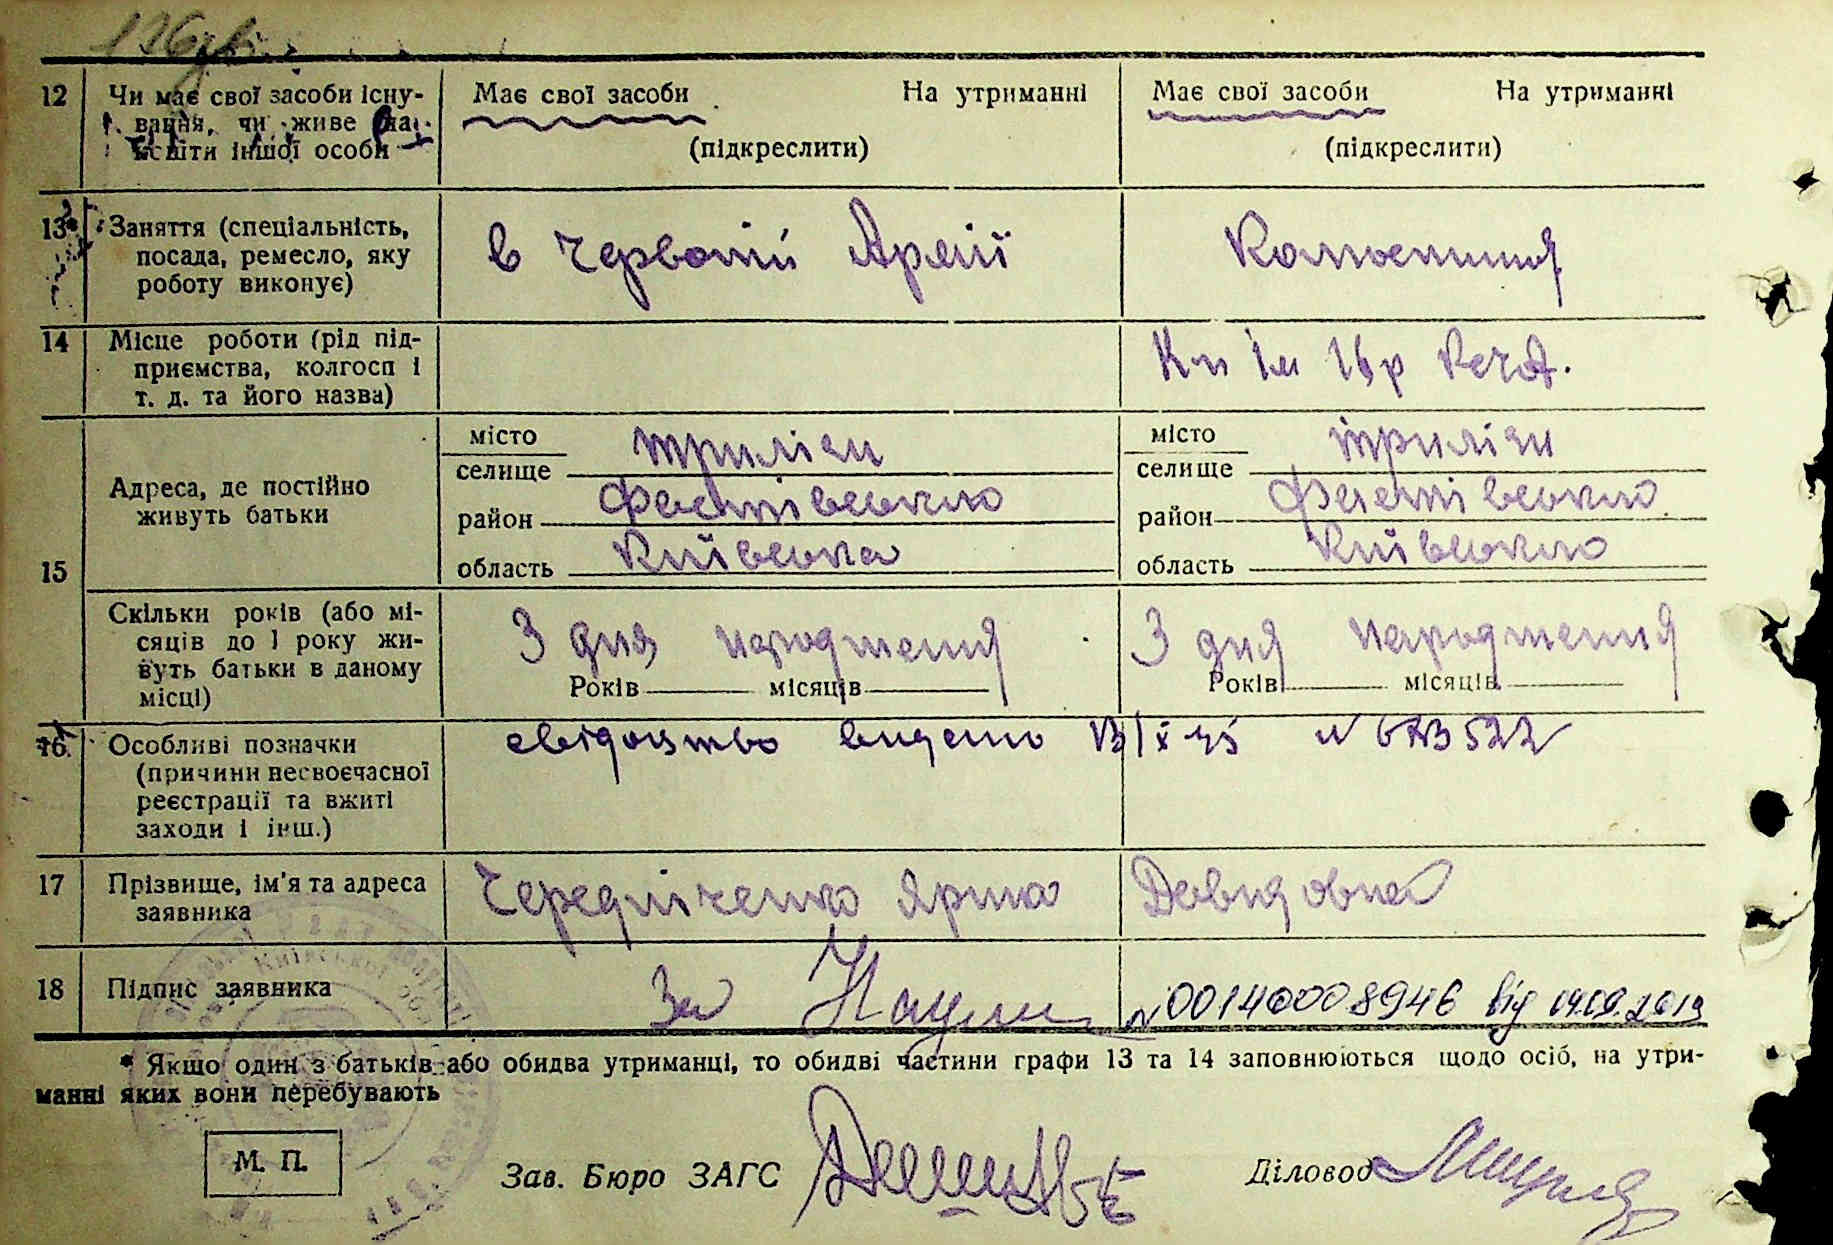 12 Чи має свої засоби існу- Має свої засоби На утриманні Має свої засоби На утриманні
вання, чи живе на
кошти іншої особи (підкреслити) (підкреслити)
13 Заняття (спеціальність,
посада, ремесло, яку в Червоній Армії Колгоспниця
роботу виконує)
14 Місце роботи (рід під-
приємства, колгосп і Кп ім
т. д. та його назва)
місто Триліси місто Триліси
селище селище
Адреса, де постійно
живуть батьки район Фастівського район Фастівського
15 область Київська область Київського
Скільки років (або мі-
сяців до 1 року жи- З дня народження З дня народження
вуть батьки в даному
місці) Років місяців Років місяців
16 Особливі позначки свідоцтво видано
(причини несвоєчасної
реєстрації та вжиті
заходи і інш.)
17 Прізвище, ім'я та адреса Чередніченко Ярина Давидовна
заявника
18 Підпис заявника За №00140008946 від 19.09.2019
* Якщо один з батьків або обидва утриманці, то обидві частини графи 13 та 14 заповнюються щодо осіб, на утри-
манні яких вони перебувають
М. П. Зав. Бюро ЗАГС Діловод